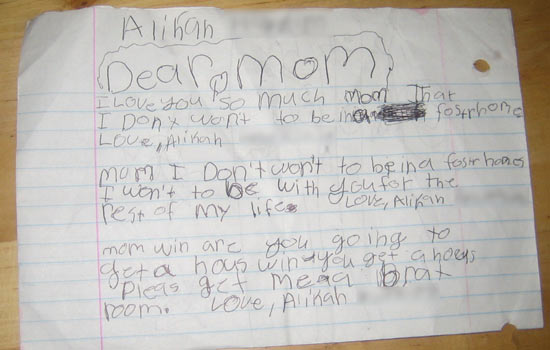 Alikah
Dear, mom
I Love you so much mom That
I Don't won't to be in a fostrhome
Love, Alikah
mom I Don't won't to be in a fostr homes
I won't to be with you for the
rest of my life.
Love, Alikah
mom win are you going to
get a hous win you get a hoeys
Pleas get me a brat
room. Love, Alikah